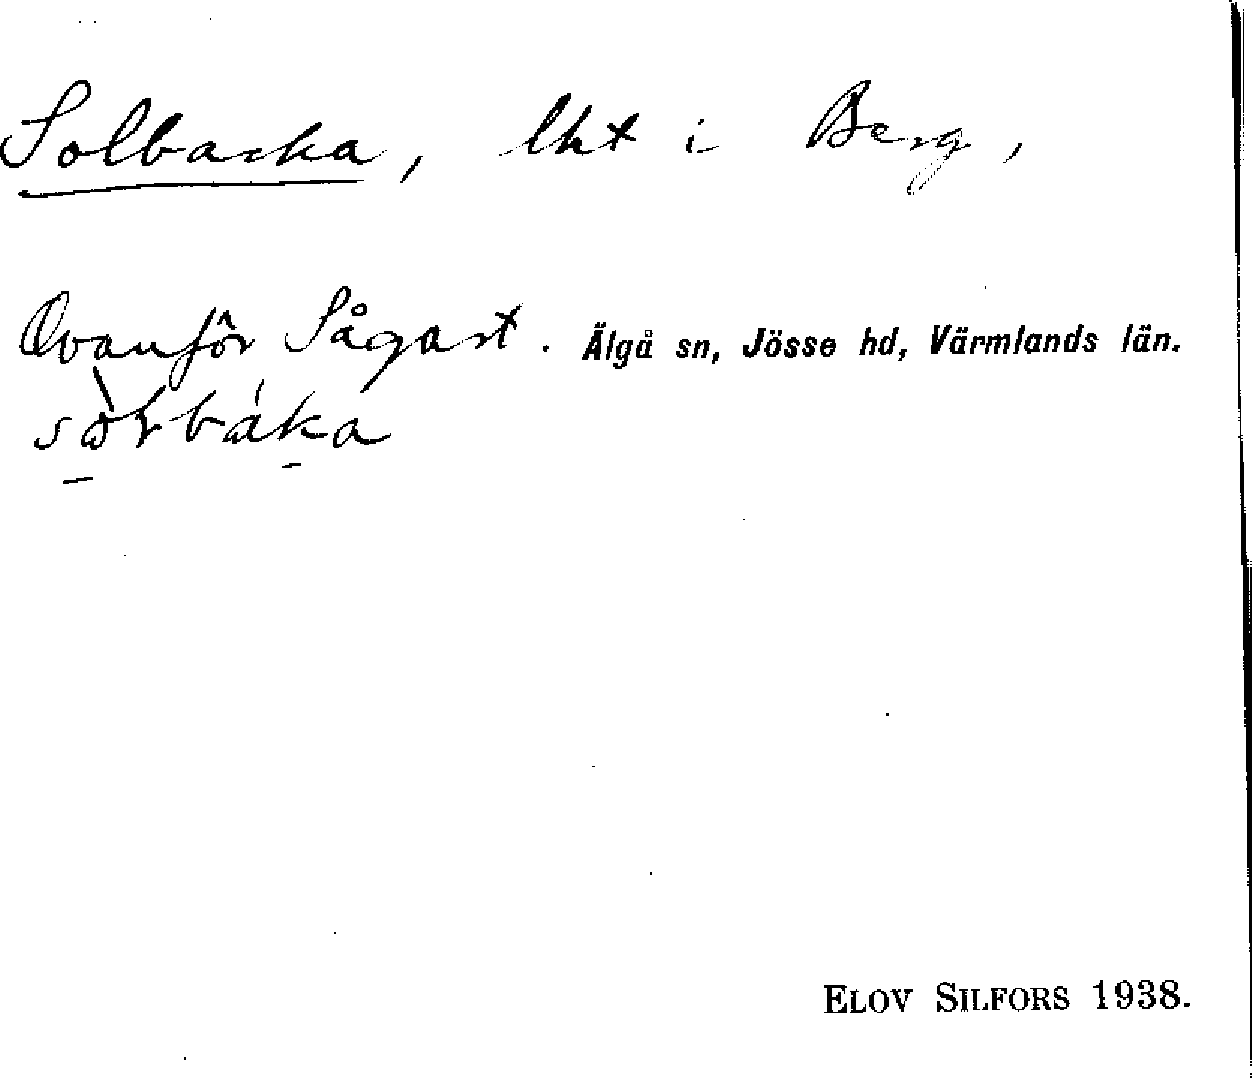 Solbacka, lht i Berg,
Ovanför Sågart. Älgå sn, Jösse hd, Värmlands län.
ELOV SILFORS 1938.